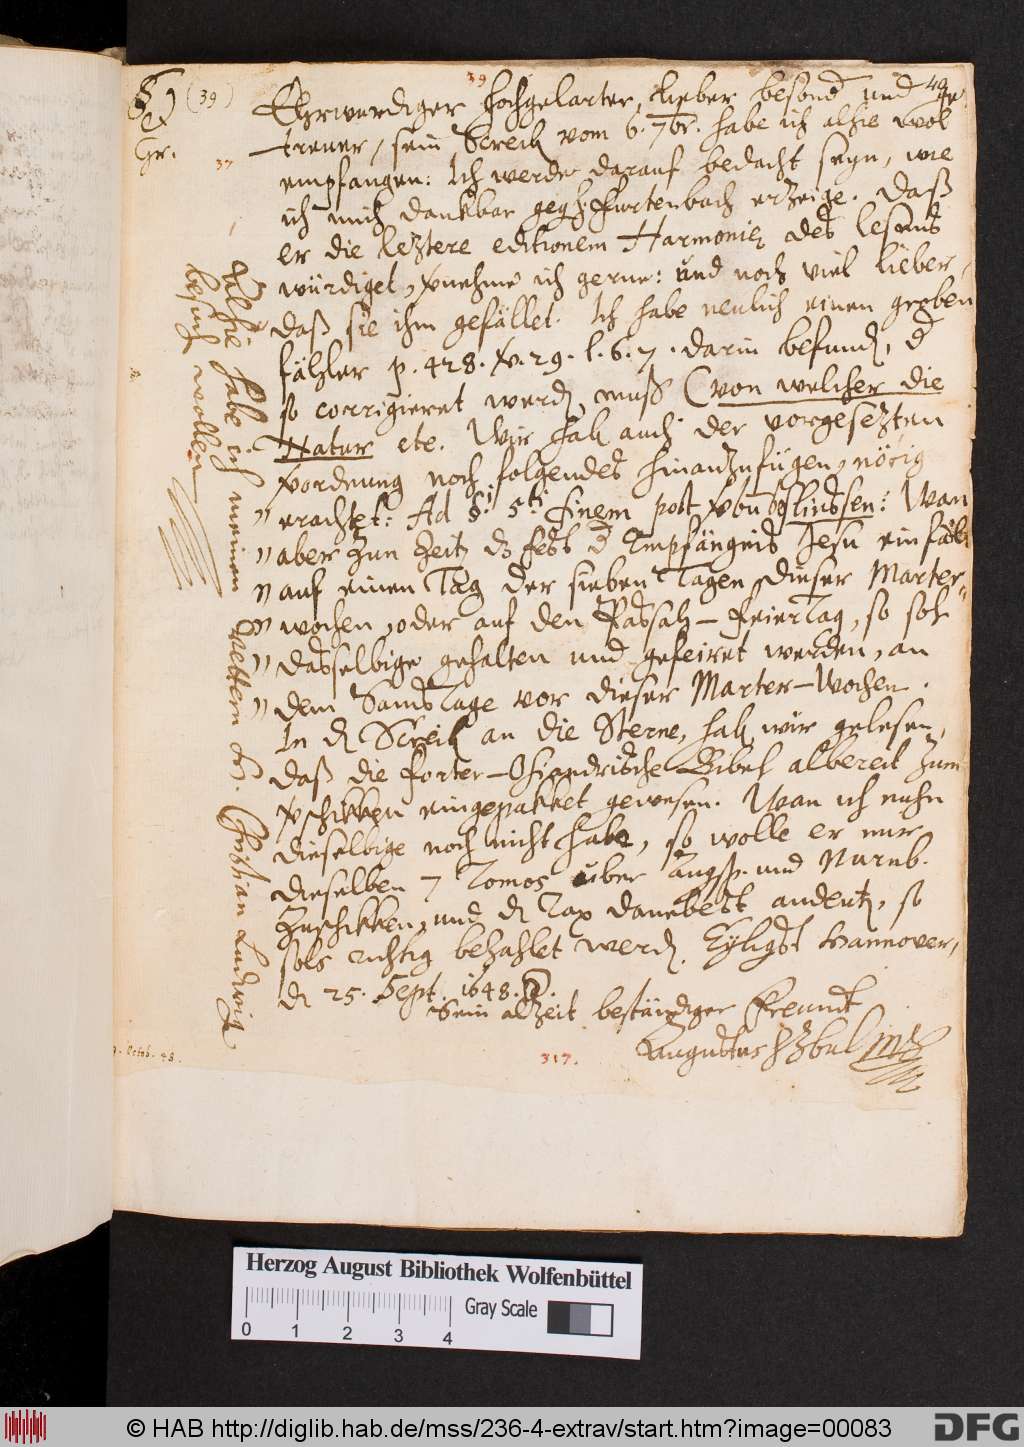 39
(39)
42
Gr.
37
Ehrwerdiger Hochgelarter, lieber besond und ge
treuer, sein Screib vom 6. 7br. habe ich alhie wol
empfangen: Ich werde darauf bedacht seyn, wie
ich mich dankbar geg H. Furtenbach erzeige. Daß
er die leztere editionem Harmoniæ des lesens
würdiget, vnehme ich gerne: und noch viel lieber,
daß sie ihm gefället. Ich habe neulich einen groben
fähler p. 428. v. 29. l. 6. 7. darin befund, d
so corrigieret werd muß (von welcher die
Natur etc. Wir hab auch der vorgesezten
vordnung noch folgendes hinanzufügen, nötig
" erachtet: Ad §i 5ti finem post
" aber zun Zeitz ds fest d Empfängnis Jesu ein fäl
" auf einen Tag der sieben Tagen dieser Marter
" wochen, oder auf den Passah-feierTag, so sol
" dasselbige gehalten und gefeiret werden, an
" dem SamsTage vor dieser Marter-Wochen.
In d Screib an die Sterne, hab wir gelesen,
daß die forter-Osiandrische Bibel albereit zum
vschikken eingepakket gewesen. Wan ich nuhn
dieselbige noch nicht habe, so wolle er nur
dieselben 7 Tomos über Augsp. und Nurnb.
zuschikken, und d Tax danebest andeut, so
sols richtig bezahlet werd. Eyligst Hannover,
d 25. Sept. 1648.
Sein alzeit beständiger Freund
Augustus HZBuL mp
Alhie habe ich meinen Vettern H. Christian Ludwig
besuch wollen
. Octob. 48.
317.
Herzog August Bibliothek Wolfenbüttel
Gray Scale
0 1 2 3 4
© HAB http://diglib.hab.de/mss/236-4-extrav/start.htm?image=00083
DFG